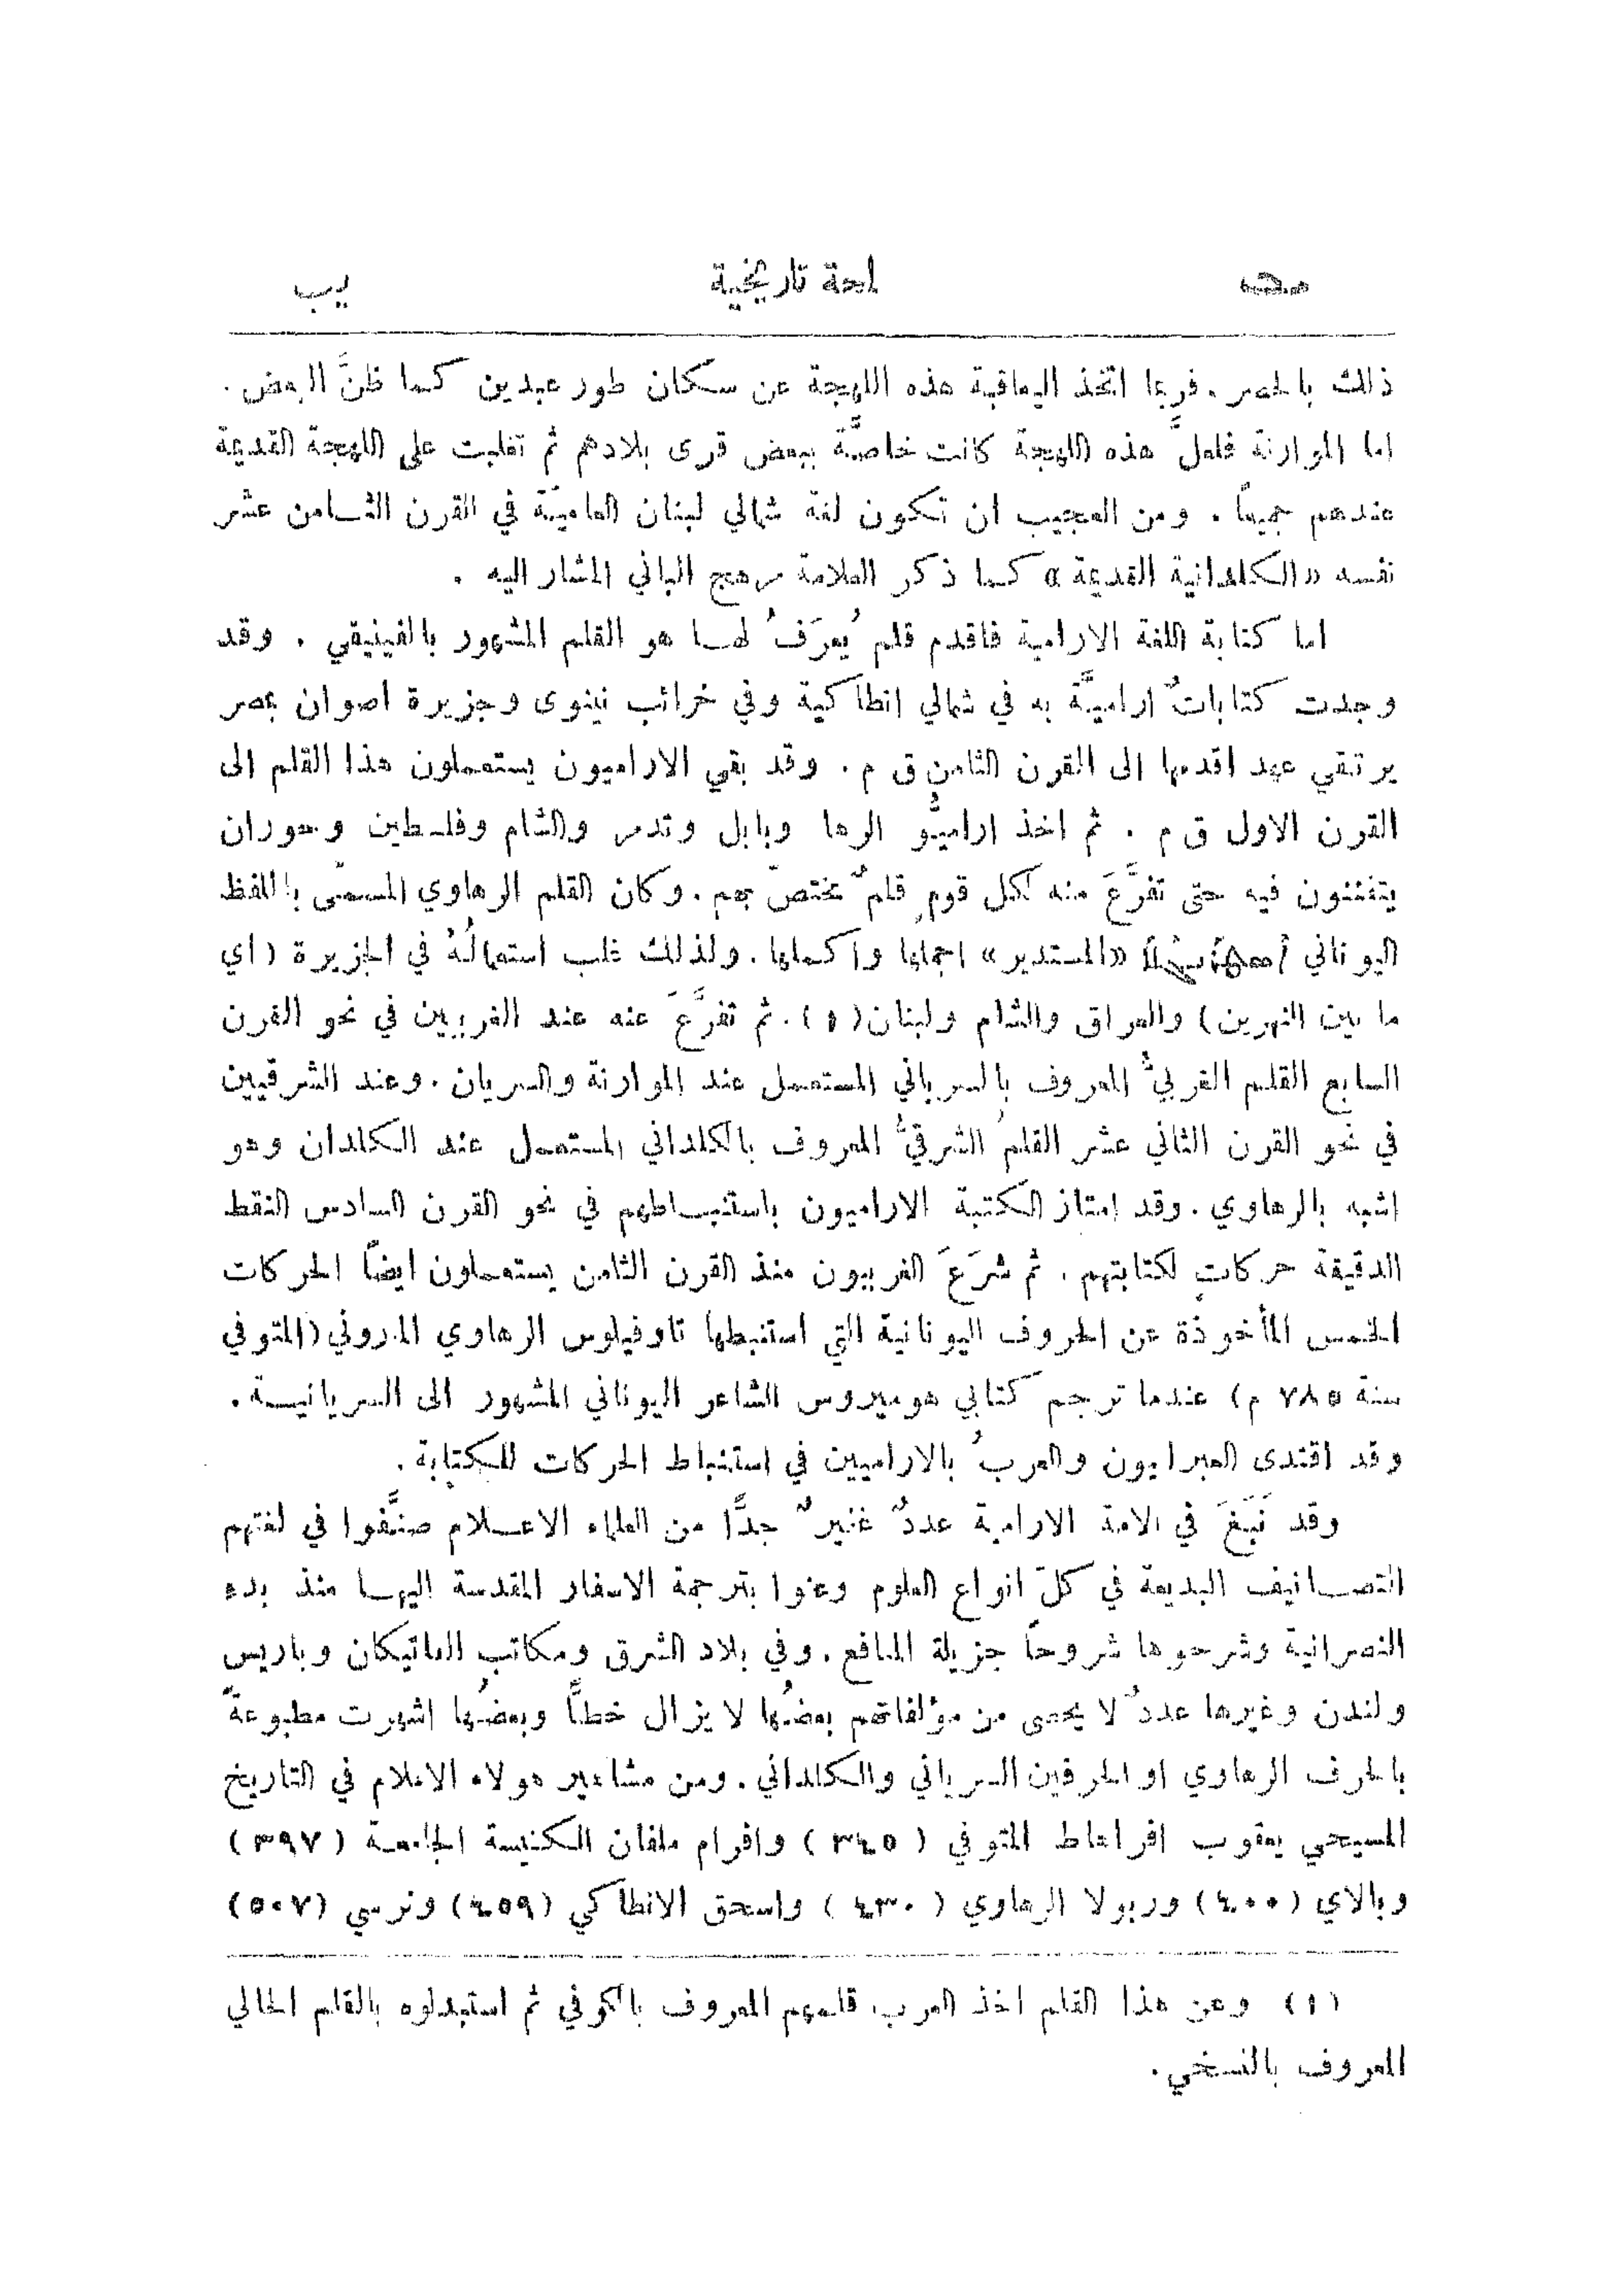 يب لمحة تاريخية
ذلك بالحصر. فربما اتخذ اليعاقبة هذه اللهجة عن سكان طور عبدين كما ظنَّ البعض.
اما الموارنة فلعلَّ هذه اللهجة كانت خاصَّة ببعض قرى بلادهم ثم تغلبت على اللهجة القديمة
عندهم جميعًا. ومن العجيب ان تكون لغة شمالي لبنان العاميَّة في القرن الثامن عشر
نفسه «الكلدانية القديمة» كما ذكر العلامة مرهج الباني المشار اليه.
اما كتابة اللغة الارامية فاقدم قلم يُعرَفُ لها هو القلم المشهور بالفينيقي. وقد
وجدت كتاباتٌ اراميَّة به في شمالي انطاكية وفي خرائب نينوى وجزيرة اصوان بمصر
يرتقي عهد اقدمها الى القرن الثامن ق م. وقد بقي الاراميون يستعملون هذا القلم الى
القرن الاول ق م. ثم اخذ اراميُّو الرها وبابل وتدمر والشام وفلسطين وحوران
يتفننون فيه حتى تفرَّعَ منه لكل قومٍ قلمٌ مختصّ بهم. وكان القلم الرهاوي المسمّى باللفظ
اليوناني «المستدير» اجملها واكملها. ولذلك غلب استعمالُهُ في الجزيرة (اي
ما بين النهرين) والعراق والشام ولبنان(١). ثم تفرَّعَ عنه عند الغربيين في نحو القرن
السابع القلم الغربيُّ المعروف بالسرياني المستعمل عند الموارنة والسريان. وعند الشرقيين
في نحو القرن الثاني عشر القلمُ الشرقيُّ المعروف بالكلداني المستعمل عند الكلدان وهو
اشبه بالرهاوي. وقد امتاز الكتبة الاراميون باستنباطهم في نحو القرن السادس النقط
الدقيقة حركاتٍ لكتابتهم. ثم شرَعَ الغربيون منذ القرن الثامن يستعملون ايضًا الحركات
الخمس المأخوذة عن الحروف اليونانية التي استنبطها تاوفيلوس الرهاوي الماروني (المتوفي
سنة ٧٨٥ م) عندما ترجم كتابي هوميروس الشاعر اليوناني المشهور الى السريانية.
وقد اقتدى العبرانيون والعربُ بالاراميين في استنباط الحركات للكتابة.
وقد نَبَغَ في الامة الارامية عددٌ غفيرٌ جدًّا من العلماء الاعلام صنَّفوا في لغتهم
التصانيف البديعة في كلّ انواع العلوم وعنوا بترجمة الاسفار المقدسة اليها منذ بدء
النصرانية وشرحوها شروحًا جزيلة المنافع. وفي بلاد الشرق ومكاتب الفاتيكان وباريس
ولندن وغيرها عددٌ لا يحصى من مؤلفاتهم بعضُها لا يزال خطًّا وبعضُها اشهرت مطبوعةً
بالحرف الرهاوي او الحرفين السرياني والكلداني. ومن مشاهير هولاء الاعلام في التاريخ
المسيحي يعقوب افراهاط المتوفي (٣٤٥) وافرام ملفان الكنيسة الجامعة (٣٩٧)
وبالاي (٤٠٠) وربولا الرهاوي (٤٣٠) واسحق الانطاكي (٤٥٩) ونرسي (٥٠٧)
(١) وعن هذا القلم اخذ العرب قلمهم المعروف بالكوفي ثم استبدلوه بالقلم الحالي
المعروف بالنسخي.